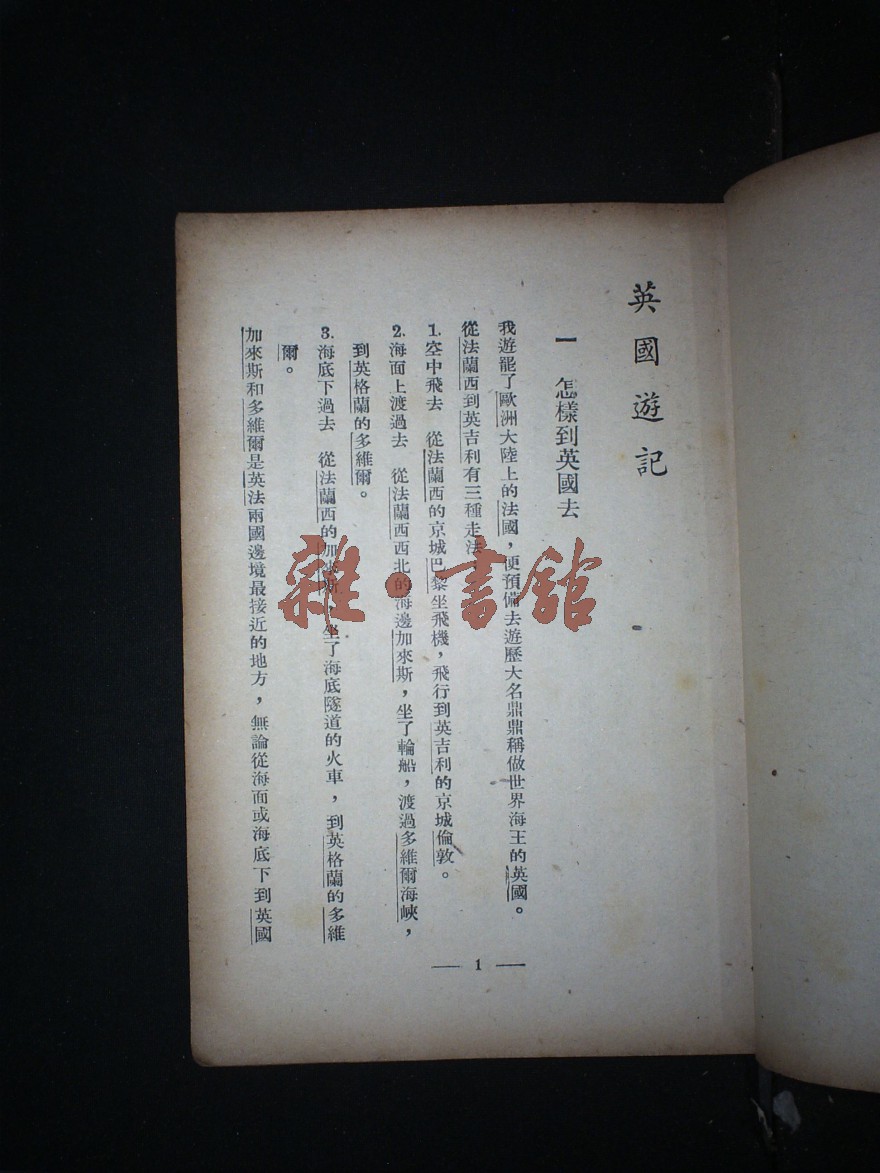 英國遊記
一 怎樣到英國去
我遊罷了歐洲大陸上的法國，便預備去遊歷大名鼎鼎稱做世界海王的英國。
從法蘭西到英吉利有三種走法
1. 空中飛去 從法蘭西的京城巴黎坐飛機，飛行到英吉利的京城倫敦。
2. 海面上渡過去 從法蘭西西北的海邊加來斯，坐了輪船，渡過多維爾海峽，
到英格蘭的多維爾。
3. 海底下過去 從法蘭西的加來斯，坐了海底隧道的火車，到英格蘭的多維
爾。
加來斯和多維爾是英法兩國邊境最接近的地方，無論從海面或海底下到英國
— 1 —
雜·書館